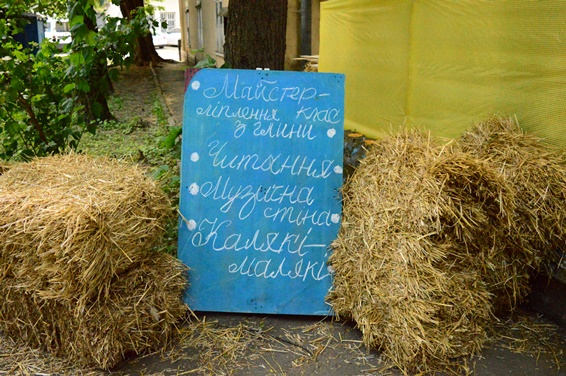 Майстер-
ліплення клас
з глини
Читання
Музична
стіна
Калякі-
малякі